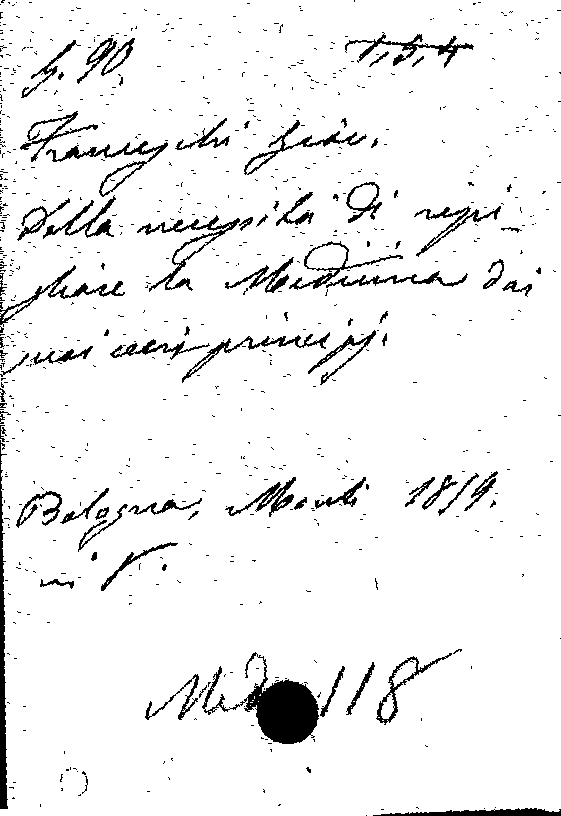 G. 90. 1,5,4
Franceschi Giov.
Della necessità di ripi-
gliare la Medicina dai
suoi veri principj.
Bologna, Monti 1859.
in 8.
Med. 118